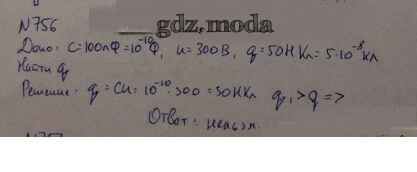 gdz.moda
N756
Дано: C=100пФ=10⁻¹⁰Ф, u=300В, q=50НКл=5·10⁻⁸Кл
Найти q
Решение. q=Cu=10⁻¹⁰·300=30НКл q₁>q =>
Ответ: нельзя.